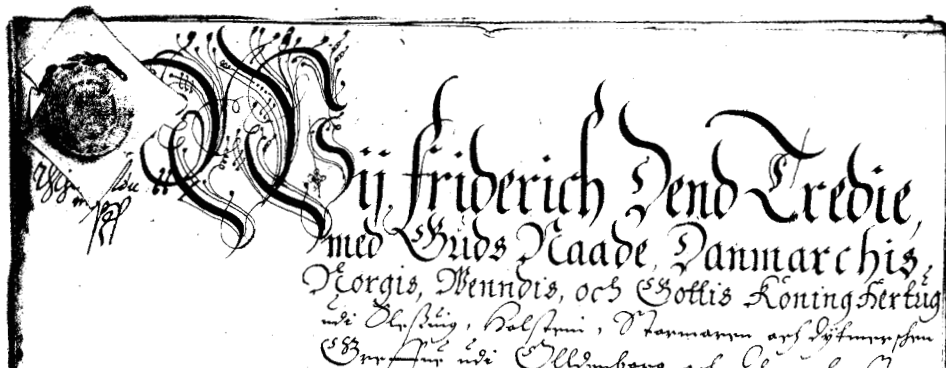 Wij Friderich Dend Tredie,
med Guds Naade, Danmarchis,
Norgis, Wenndis, och Gottis Koning Hertug
udi Sleßuig, Holsten, Stormaren och Dytmerschen
Greffue udi Olldenborg och